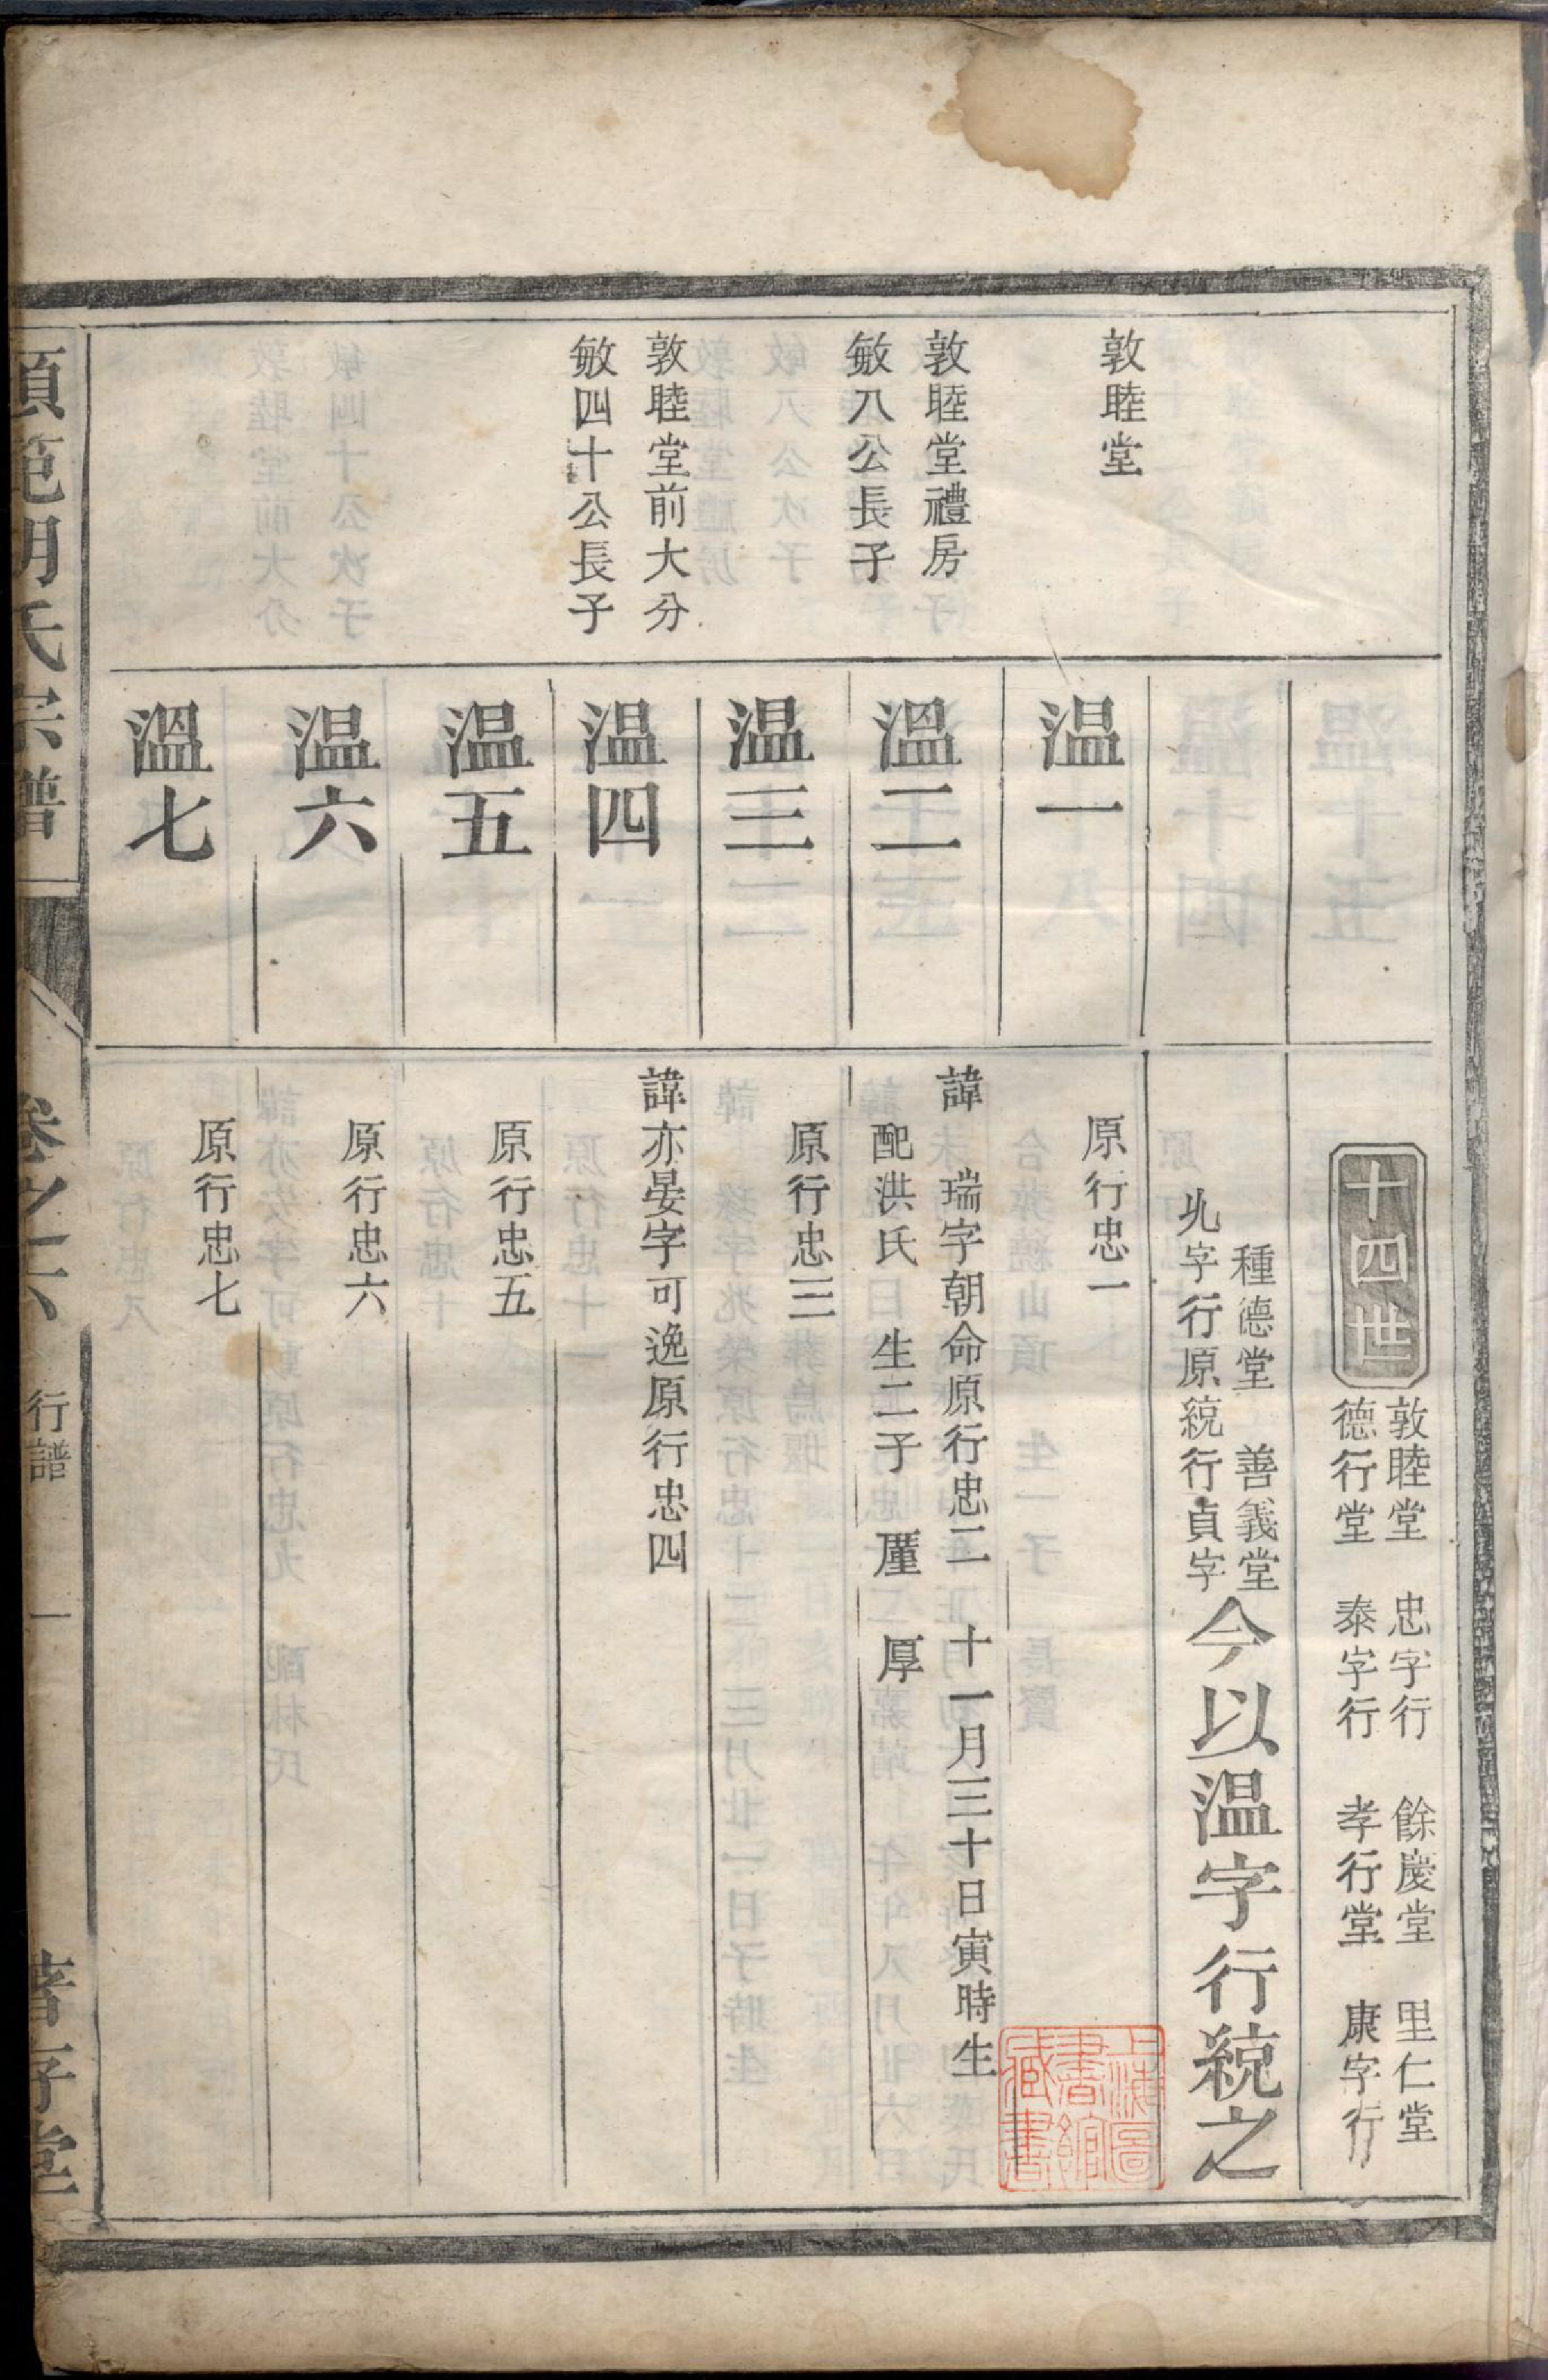 十四世
敦睦堂　忠字行　餘慶堂　里仁堂
德行堂　泰字行　孝行堂　康字行
種德堂　善義堂
字行原統行貞字
今以温字行統之
敦睦堂
温一
原行忠一
敦睦堂禮房
敏八公長子
溫二
諱　瑞字朝命原行忠二　十一月三十日寅時生
配洪氏　生二子　厘　厚
温三
原行忠三
敦睦堂前大分
敏四十公長子
温四
諱亦晏字可逸原行忠四
温五
原行忠五
温六
原行忠六
溫七
原行忠七
範胡氏宗譜
卷之六
行譜
一
著存堂
上海圖書館藏書